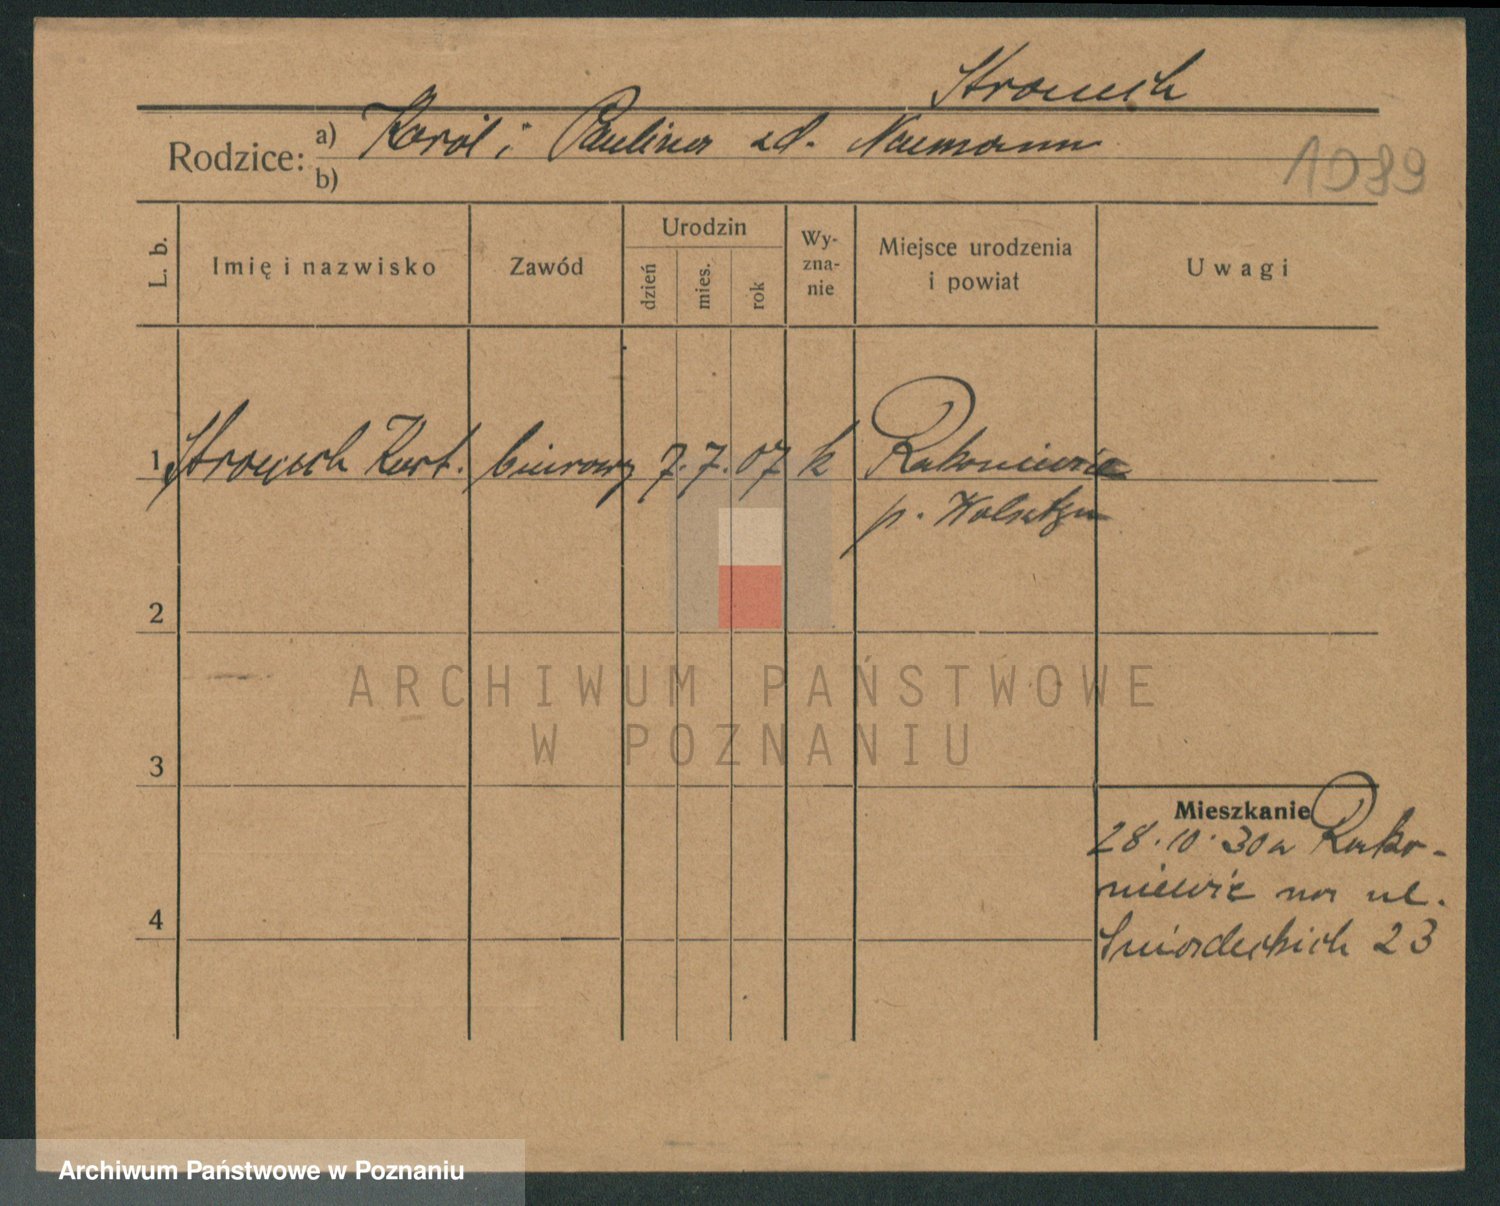 Strauch
Rodzice: a) Karol i Paulina zd. Naumann
b)
1089
L. b. Imię i nazwisko Zawód Urodzin dzień mies. rok Wy-zna-nie Miejsce urodzenia i powiat Uwagi
1 Strauch Kurt. biurowy 7. 7. 07 k Rakoniewice
p. Wolsztyn
2
ARCHIWUM PAŃSTWOWE
W POZNANIU
3
Mieszkanie
28.10.30 z Rako-
niewic na ul.
Śniadeckich 23
4
Archiwum Państwowe w Poznaniu